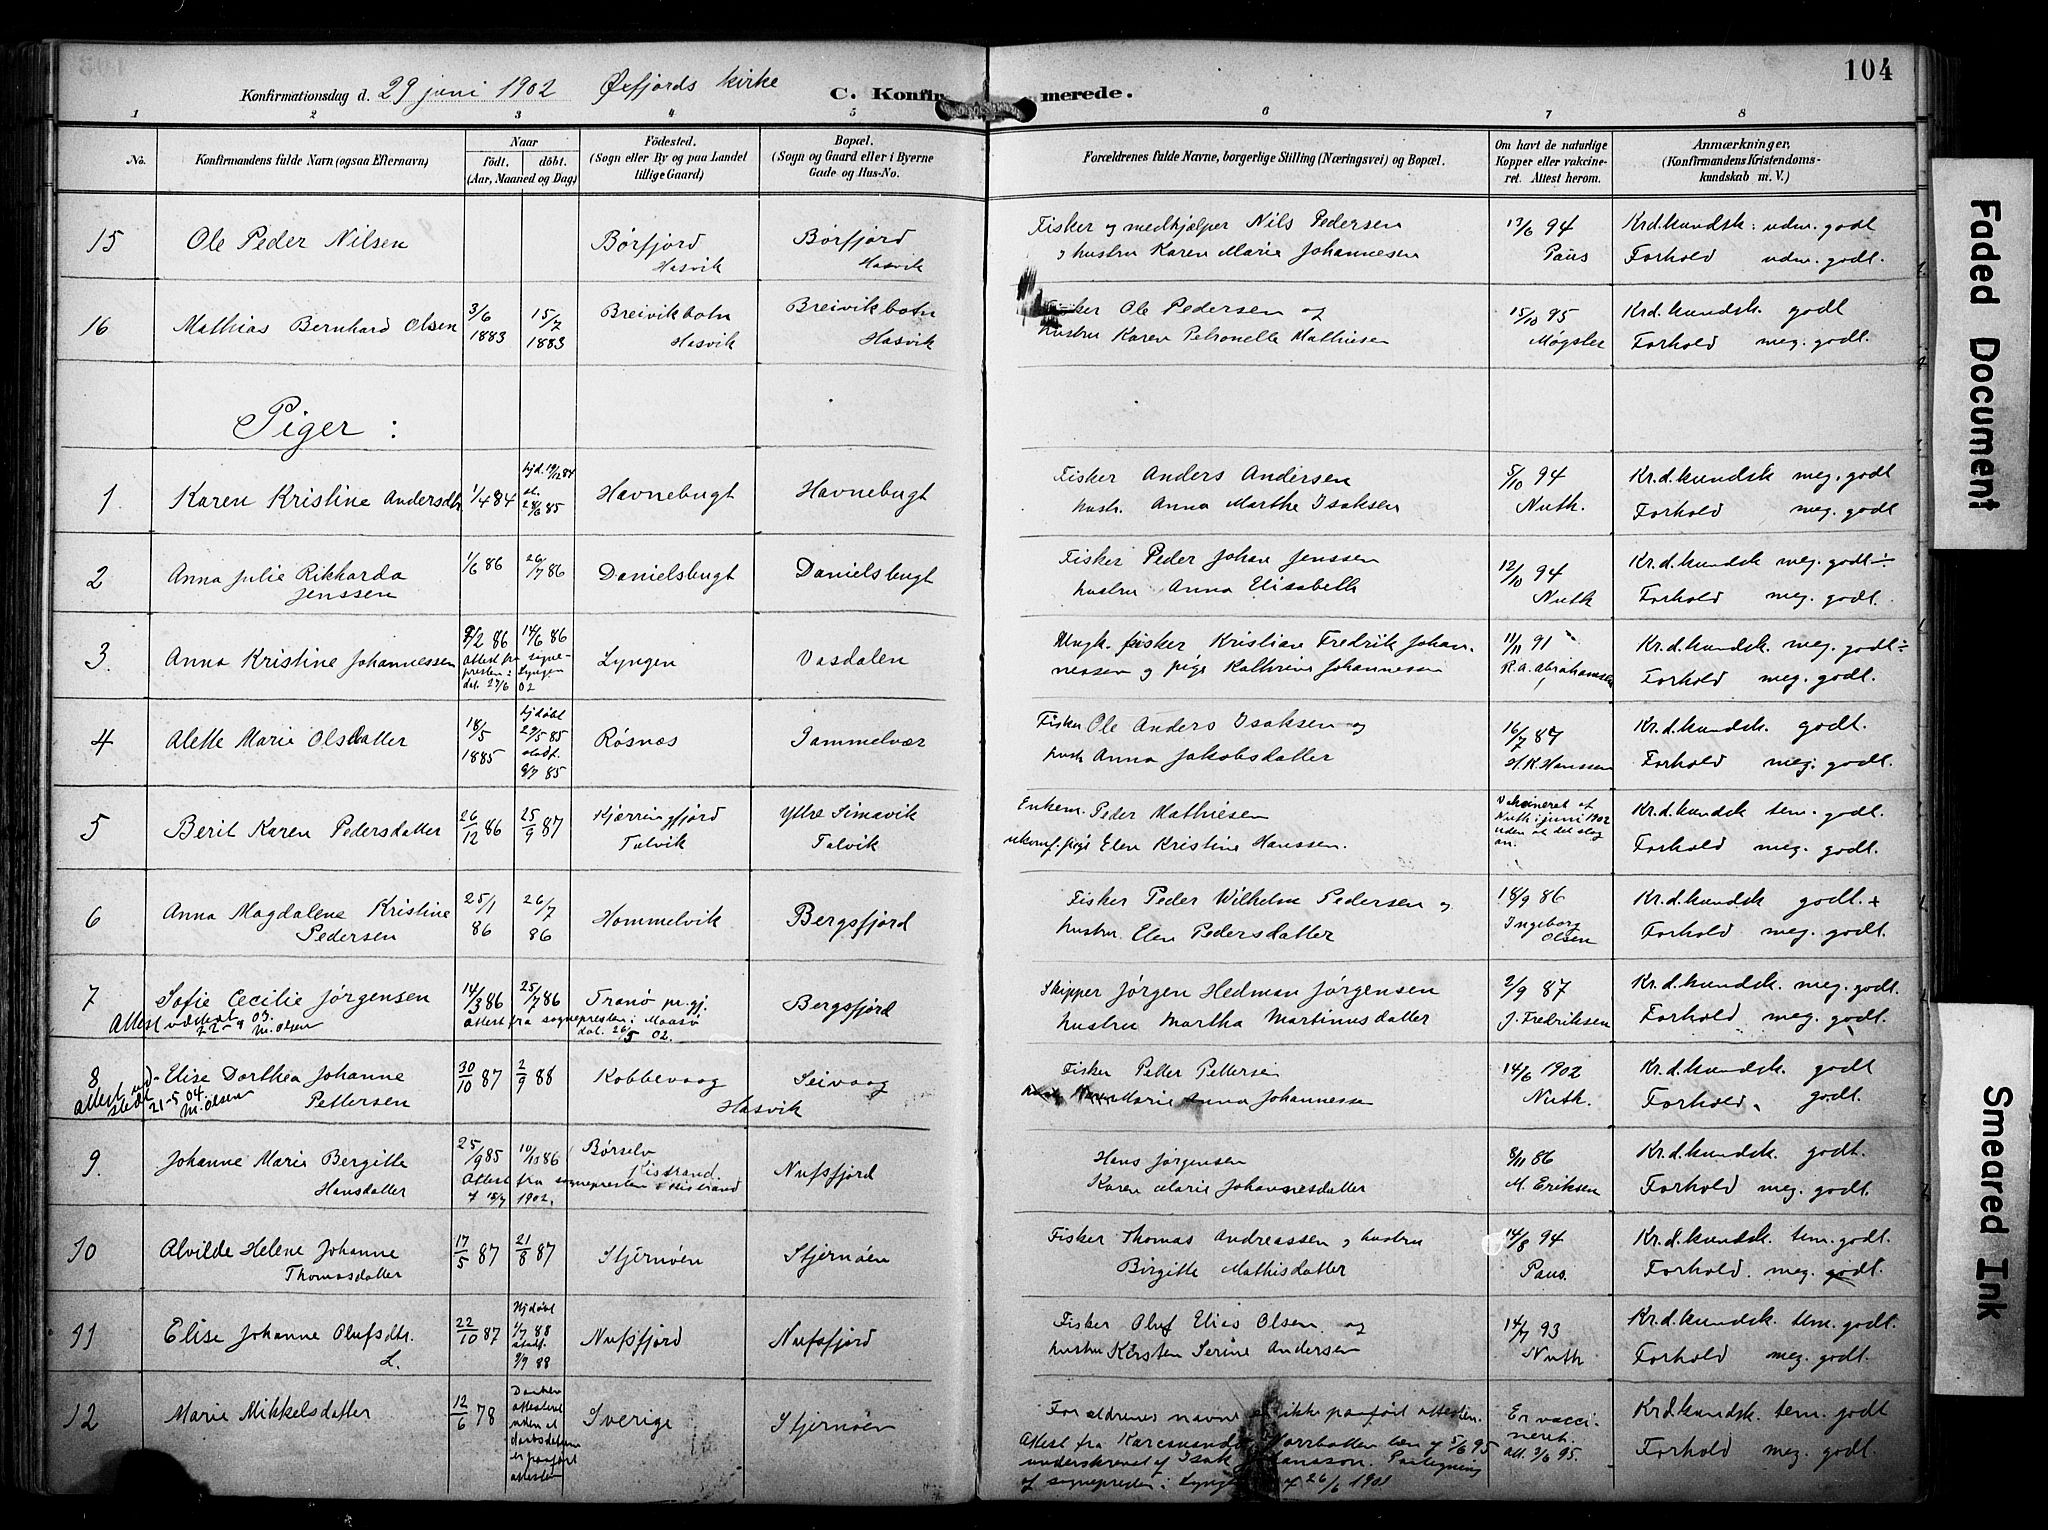 104
Konfirmationsdag d. 29 juni 1902 Øxfjords kirke C. Konfir merede.
1 2 3 4 5 6 7 8
No. Konfirmandens fulde Navn (ogsaa Efternavn) Naar født. døbt. (Aar, Maaned og Dag) Fødested. (Sogn eller By og paa Landet tillige Gaard) Bopæl. (Sogn og Gaard eller i Byerne Gade og Hus-No. Forældrenes fulde Navne, borgerlige Stilling (Næringsvei) og Bopæl. Om havt de naturlige Kopper eller vakcineret. Attest herom. Anmærkninger, (Konfirmandens Kristendomskundskab m. V.)
15 Ole Peder Nilsen Børfjord Børfjord Fisker og medhjælper Nils Pedersen 17/6 94 Krd.kundsk: udm. godt
Hasvik Hasvik og hustru Karen Marie Johannesen Paus Forhold udm. godt.
16 Mathias Bernhard Olsen 3/6 1883 15/7 1883 Breivikbotn Breivikbotn Fisker Ole Pedersen og 15/10 95 Krd.kundsk. godt
Hasvik Hasvik hustru Karen Petronelle Mathiesen Møgster Forhold meg. godt.
Piger :
1 Karen Kristine Andersdtr 1/4 84 hjd. 19/12 84 st. 28/6 85 Havnebugt Havnebugt Fisker Anders Andersen 5/10 94 Kr.d.kundsk meg. godt
hustr. Anna Marthe Isaksen Nuth. Forhold meg. godt
2 Anna Julie Rikharda 1/6 86 26/7 86 Danielsbugt Danielsbugt Fisker Peder Johan Jenssen 12/10 94 Kr.d.kundsk meg. godt ÷
Jenssen hustru Anna Elisabeth Nuth Forhold meg. godt.
3. Anna Kristine Johannessen 9/2 86 14/6 86 Lyngen Vasdalen Ungk. fisker Kristian Fredrik Johan- 11/11 91 Kr.d.kundsk meg. godt ÷
Attest fra sognepresten i Lyngen dat. 27/6 02 nessen og pige Kathrine Johannessen R.A. Abrahamsen Forhold meg. godt.
4 Alette Marie Olsdatter 18/5 1885 hjdøbt 29/5 85 stadf. 9/7 85 Røsnæs Sammelvær Fisker Ole Anders Isaksen og 16/7 87 Kr.d.kundsk. godt.
hustr Anna Jakobsdatter H.K. Hanssen Forhold meg. godt.
5 Berit Karen Pedersdatter 26/12 86 25/9 87 Kjærringfjord Yttre Simavik Enkem. Peder Mathiesen Vakcineret af Nuth i juni 1902 uden at det slog an. Kr.d.kundsk tem. godt.
Talvik Talvik ukonf. pige Elen Kristine Hanssen. Forhold meg. godt.
6 Anna Magdalene Kristine 25/1 86 26/7 86 Hommelvik Bergsfjord Fisker Peder Wilhelm Pedersen og 18/9 86 Kr.d.kundsk godt. +
Pedersen hustru Elen Pedersdatter Ingeborg Olsen Forhold meg. godt.
7 Sofie Cecilie Jørgensen 14/3 86 25/7 86 Tranø pr.gj. Bergsfjord Skipper Jørgen Hedman Jørgensen 2/9 87 Kr.d.kundsk. meg. godt.
Attest udstedt 22-9 03. M. Olsen Attest fra sognepresten i Maasø dat. 26/5 02. hustru Martha Martinusdatter J. Fredriksen Forhold meg. godt.
8 Elise Dorthea Johanne 30/10 87 2/9 88 Kobbevaag Seivaag Fisker Petter Pettersen 14/6 1902 Kr.d.kundsk godt
Attest udstedt 21-5 04. M. Olsen Pettersen Hasvik Marie Anna Johannessen Nuth. Forhold godt.
9. Johanne Marie Bergitte 25/9 85 10/10 86 Børselv Nufsfjord Hans Jørgensen 8/11 86 Kr.d.kundsk. godt.
Hansdatter Attest fra sognepresten i Kistrand 1902. Kistrand Karen Marie Johannesdatter M. Eriksen Forhold meg. godt.
10 Alvilde Helene Johanne 17/5 87 21/8 87 Stjernøen Stjernøen Fisker Thomas Andreassen og hustru 14/8 94 Kr.d.kundsk. tem. godt.
Thomasdatter Birgitte Mathisdatter Paus. Forhold. meg. godt.
11 Elise Johanne Olufsdtr. 22/10 87 Hjdøbt 1/7 88 stadf. 9/9 88 Nufsfjord Nufsfjord Fisker Oluf Elias Olsen og 14/7 93 Kr.d.kundsk tem. godt.
L. hustru Kirsten Serine Andersen Nuth Forhold meg. godt.
12 Marie Mikkelsdatter 12/6 78 Daaben attesteret uden at daabsdatum er paaført attesten Sverige Stjernøen Forældrenes navne er ikke paaført attesten. Er vaccineret. att. 3/6 95. Kr.d.kundsk. tem. godt
Attest fra Karesuando, Norrbotten læn af 5/6 95 Forhold meg. godt.
underskrevet af Isak Johansson. Paategning
af sognepresten i Lyngen af 26/6 1901
Faded Document
Smeared Ink